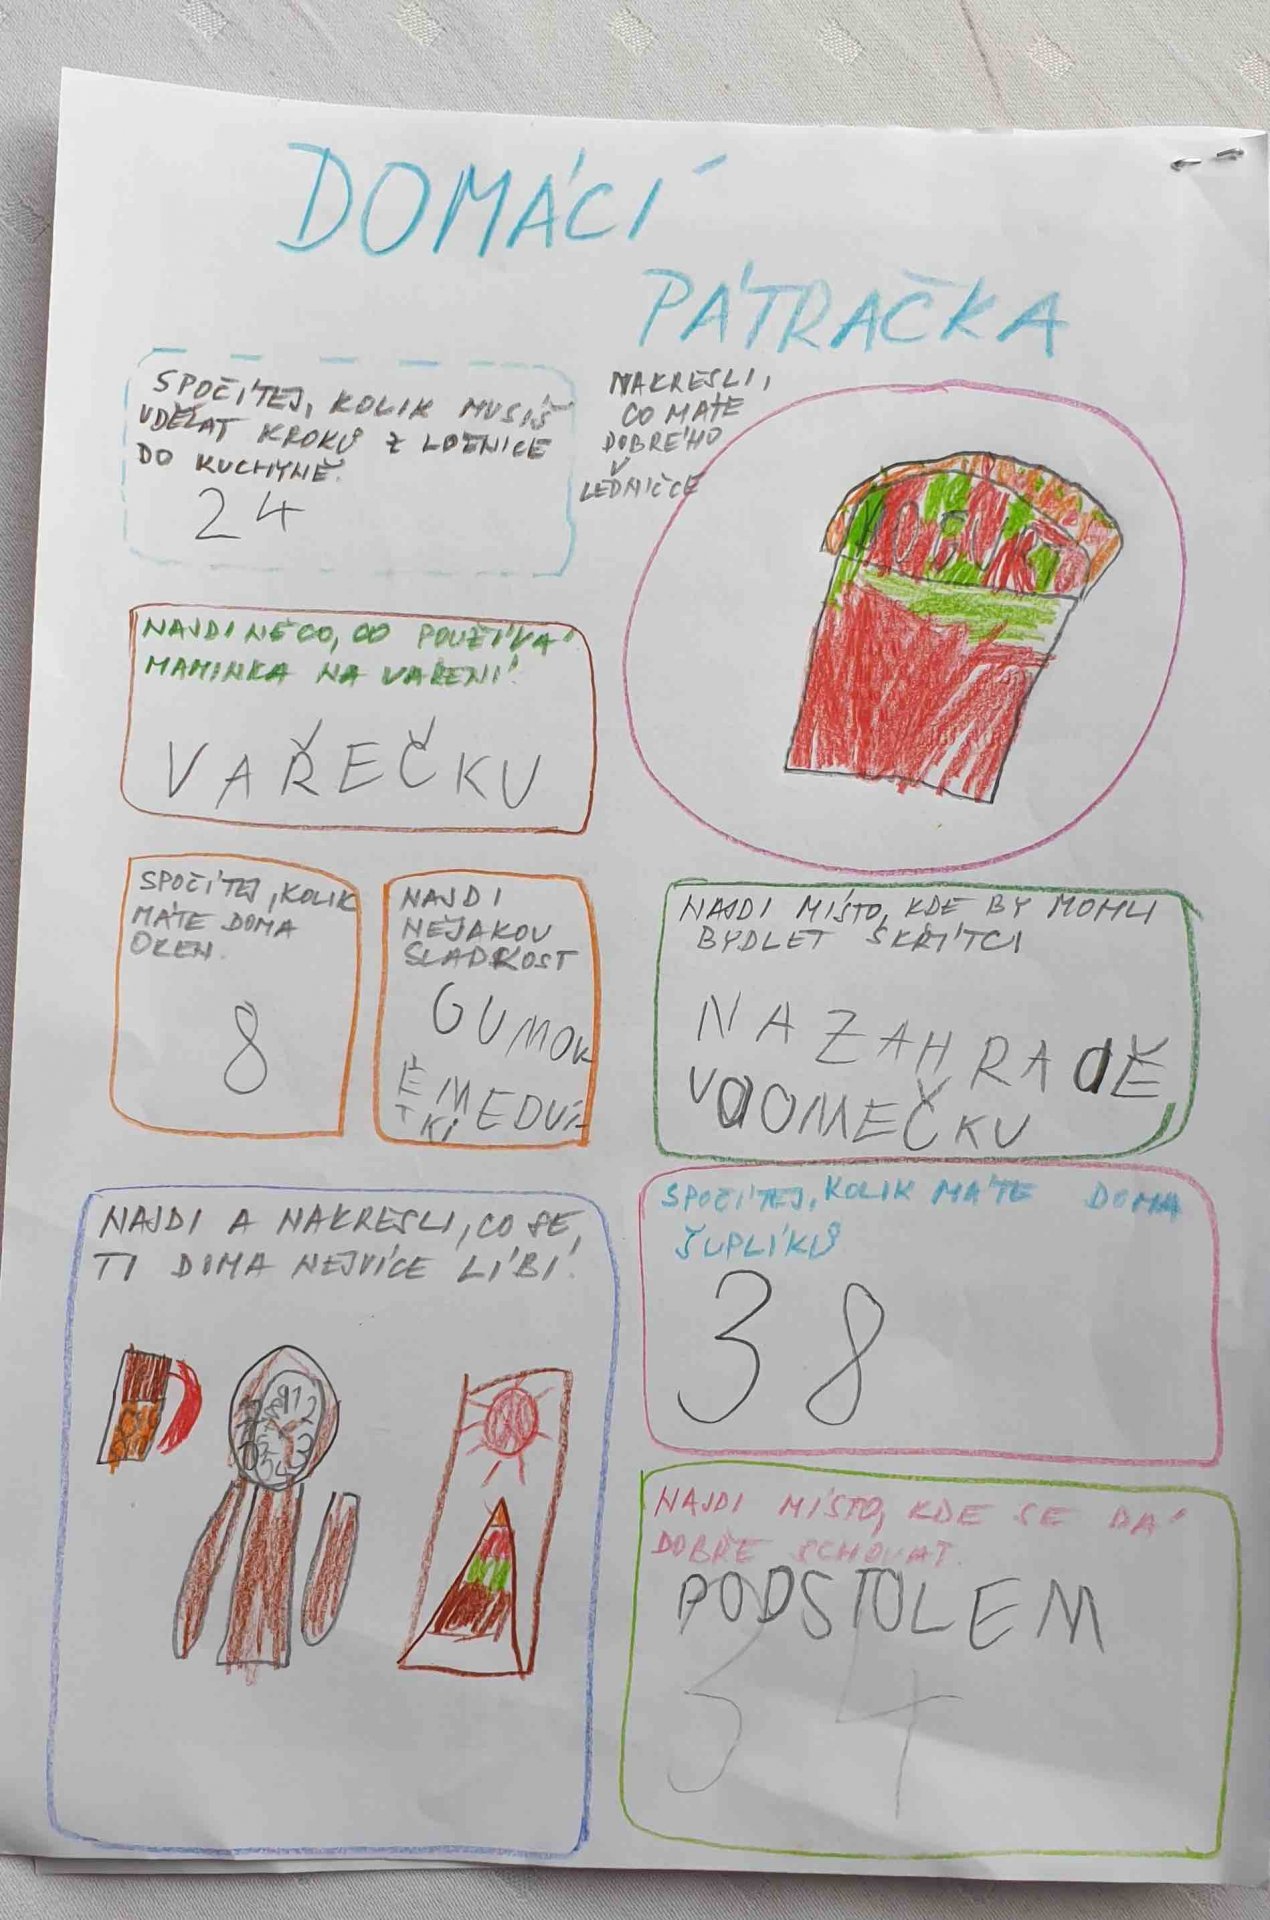 DOMÁCÍ
PÁTRAČKA
SPOČÍTEJ, KOLIK MUSÍŠ
UDĚLAT KROKŮ Z LOŽNICE
DO KUCHYNĚ.
24
NAKRESLI,
CO MÁTE
DOBRÉHO
V
LEDNIČCE
NAJDI NĚCO, CO POUŽÍVÁ
MAMINKA NA VAŘENÍ.
VAŘEČKU
SPOČÍTEJ, KOLIK
MÁTE DOMA
OKEN.
8
NAJDI
NĚJAKOU
SLADKOST
GUMOV
É MEDVÍ
TKI
NAJDI MÍSTO, KDE BY MOHLI
BYDLET SKŘÍTCI
NA ZAHRADĚ
V DOMEČKU
NAJDI A NAKRESLI, CO SE,
TI DOMA NEJVÍCE LÍBÍ.
9 1 2
3
SPOČÍTEJ, KOLIK MÁTE DOMA
ŠUPLÍKŮ
38
NAJDI MÍSTO, KDE SE DÁ
DOBŘE SCHOVAT.
POD STOLEM
34